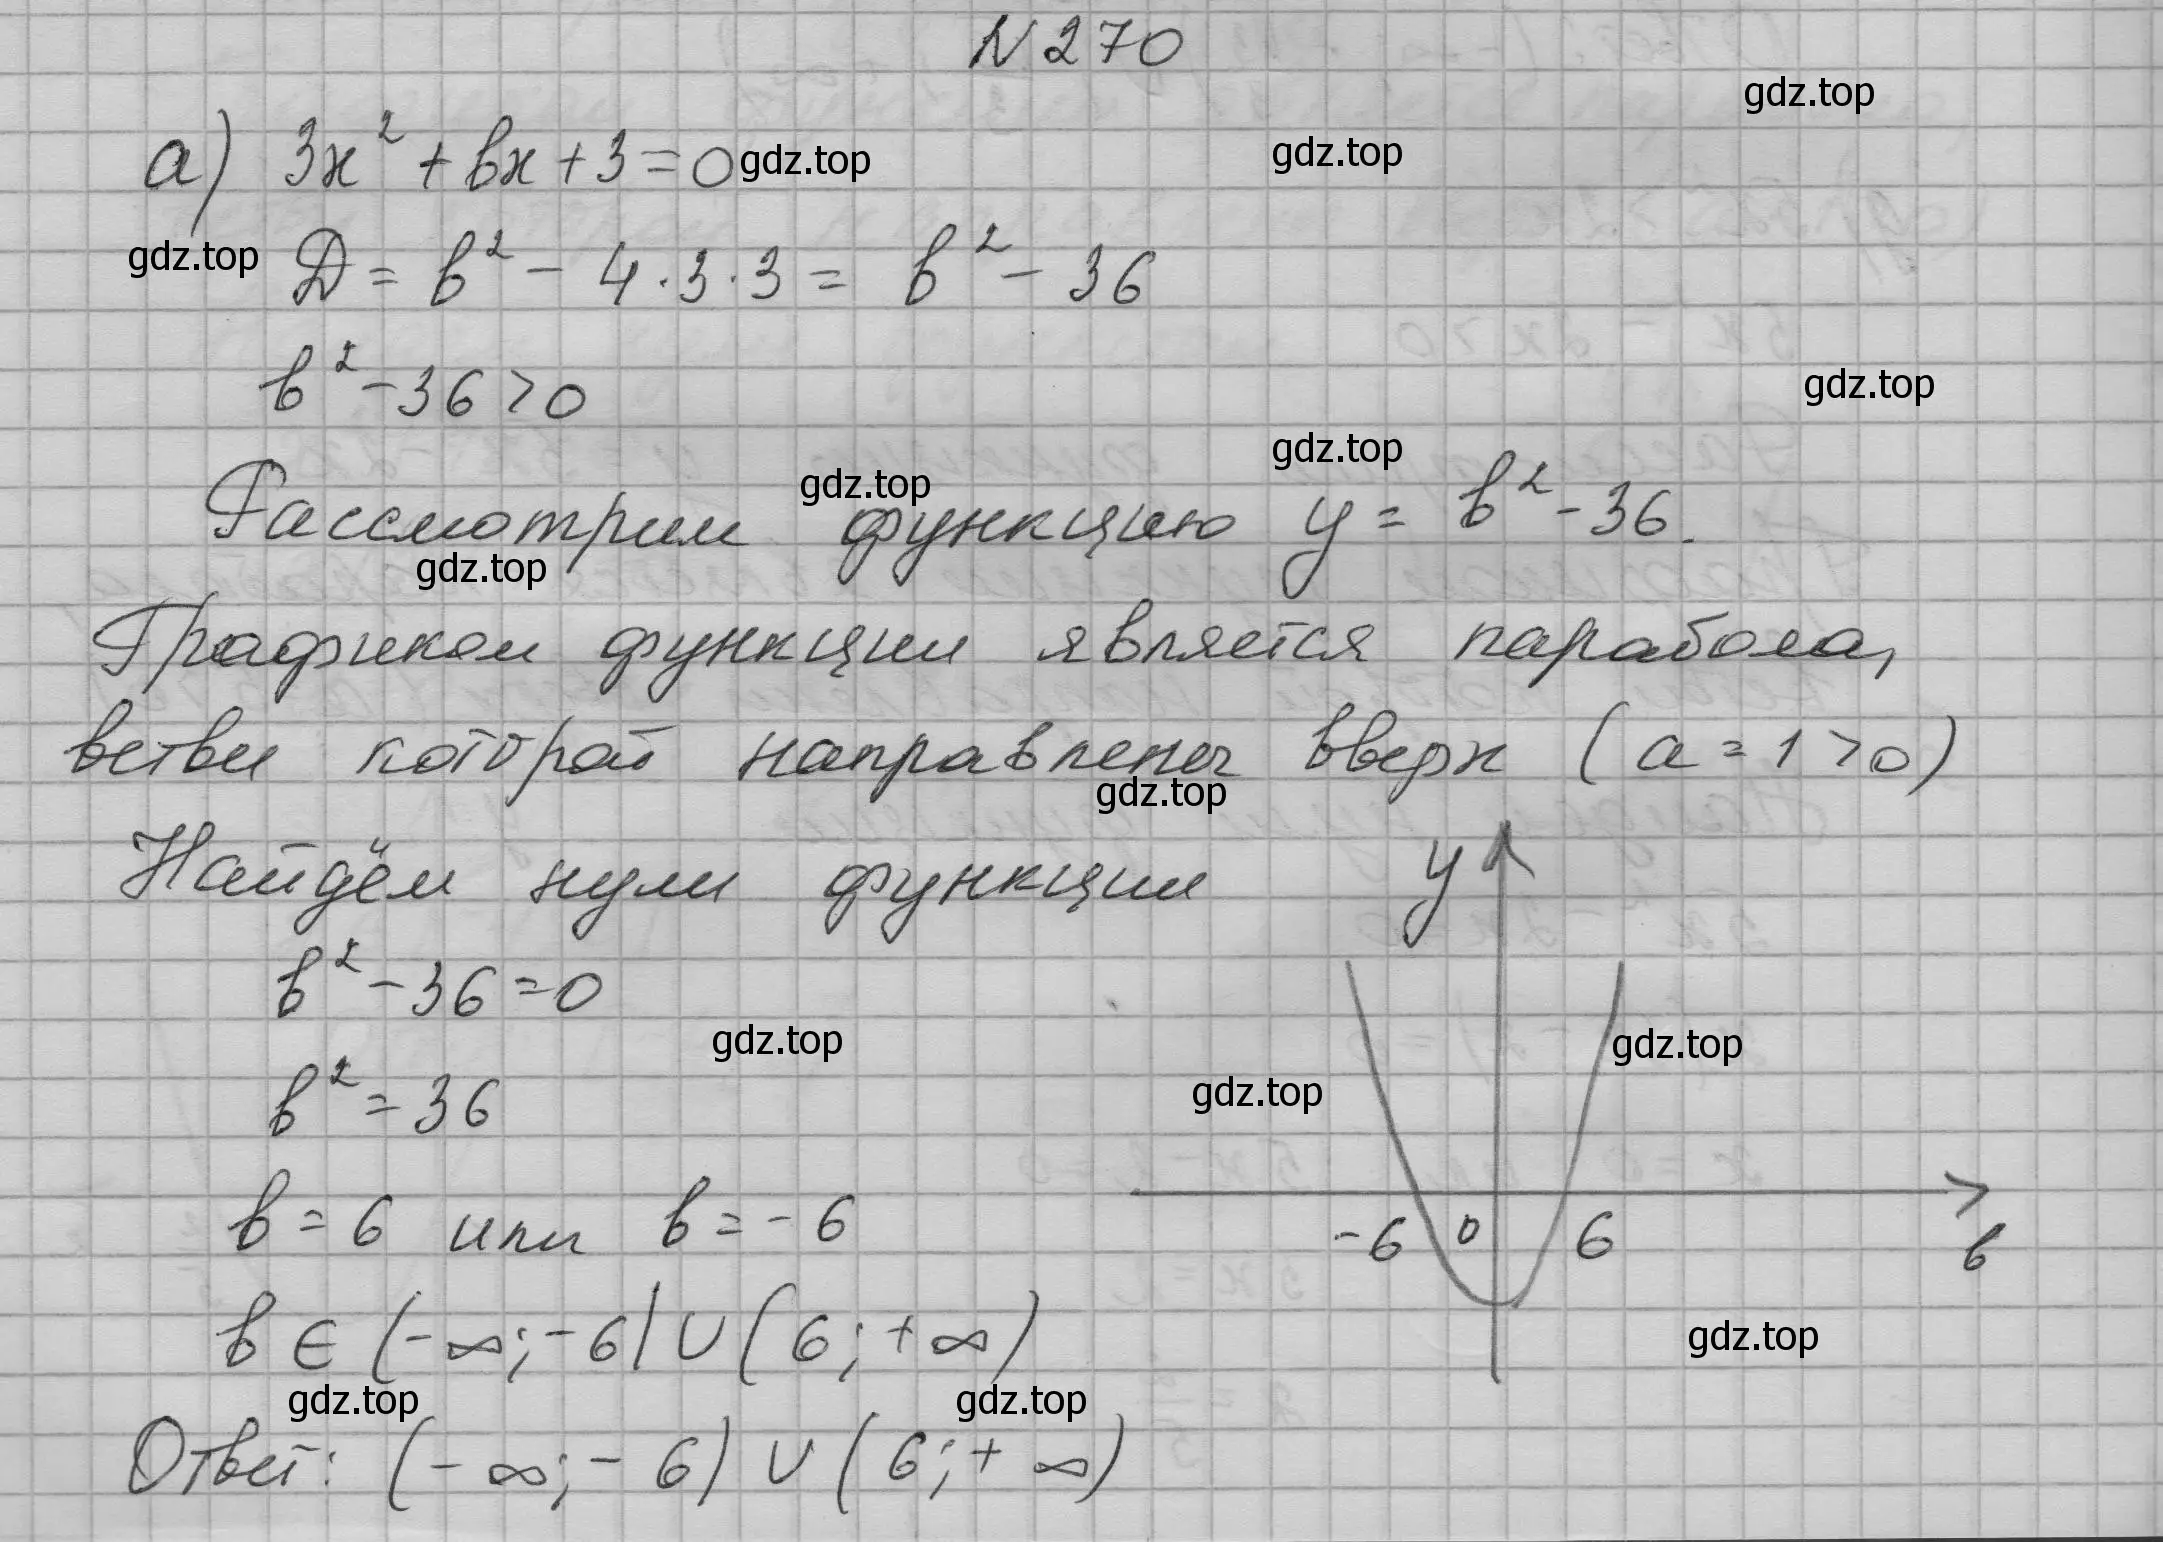 N 270
gdz.top
а) 3x² + bx + 3 = 0 gdz.top gdz.top
gdz.top D = b² - 4 · 3 · 3 = b² - 36
b² - 36 > 0 gdz.top
gdz.top gdz.top
Рассмотрим функцию y = b² - 36.
gdz.top
Графиком функции является парабола,
ветви которой направлены вверх (a = 1 > 0)
gdz.top
Найдём нули функции
y
b² - 36 = 0
gdz.top gdz.top
b² = 36 gdz.top
b = 6 или b = -6
-6 0 6 b
b ∈ (-∞; -6) ∪ (6; +∞)
gdz.top
gdz.top gdz.top
Ответ: (-∞; -6) ∪ (6; +∞)